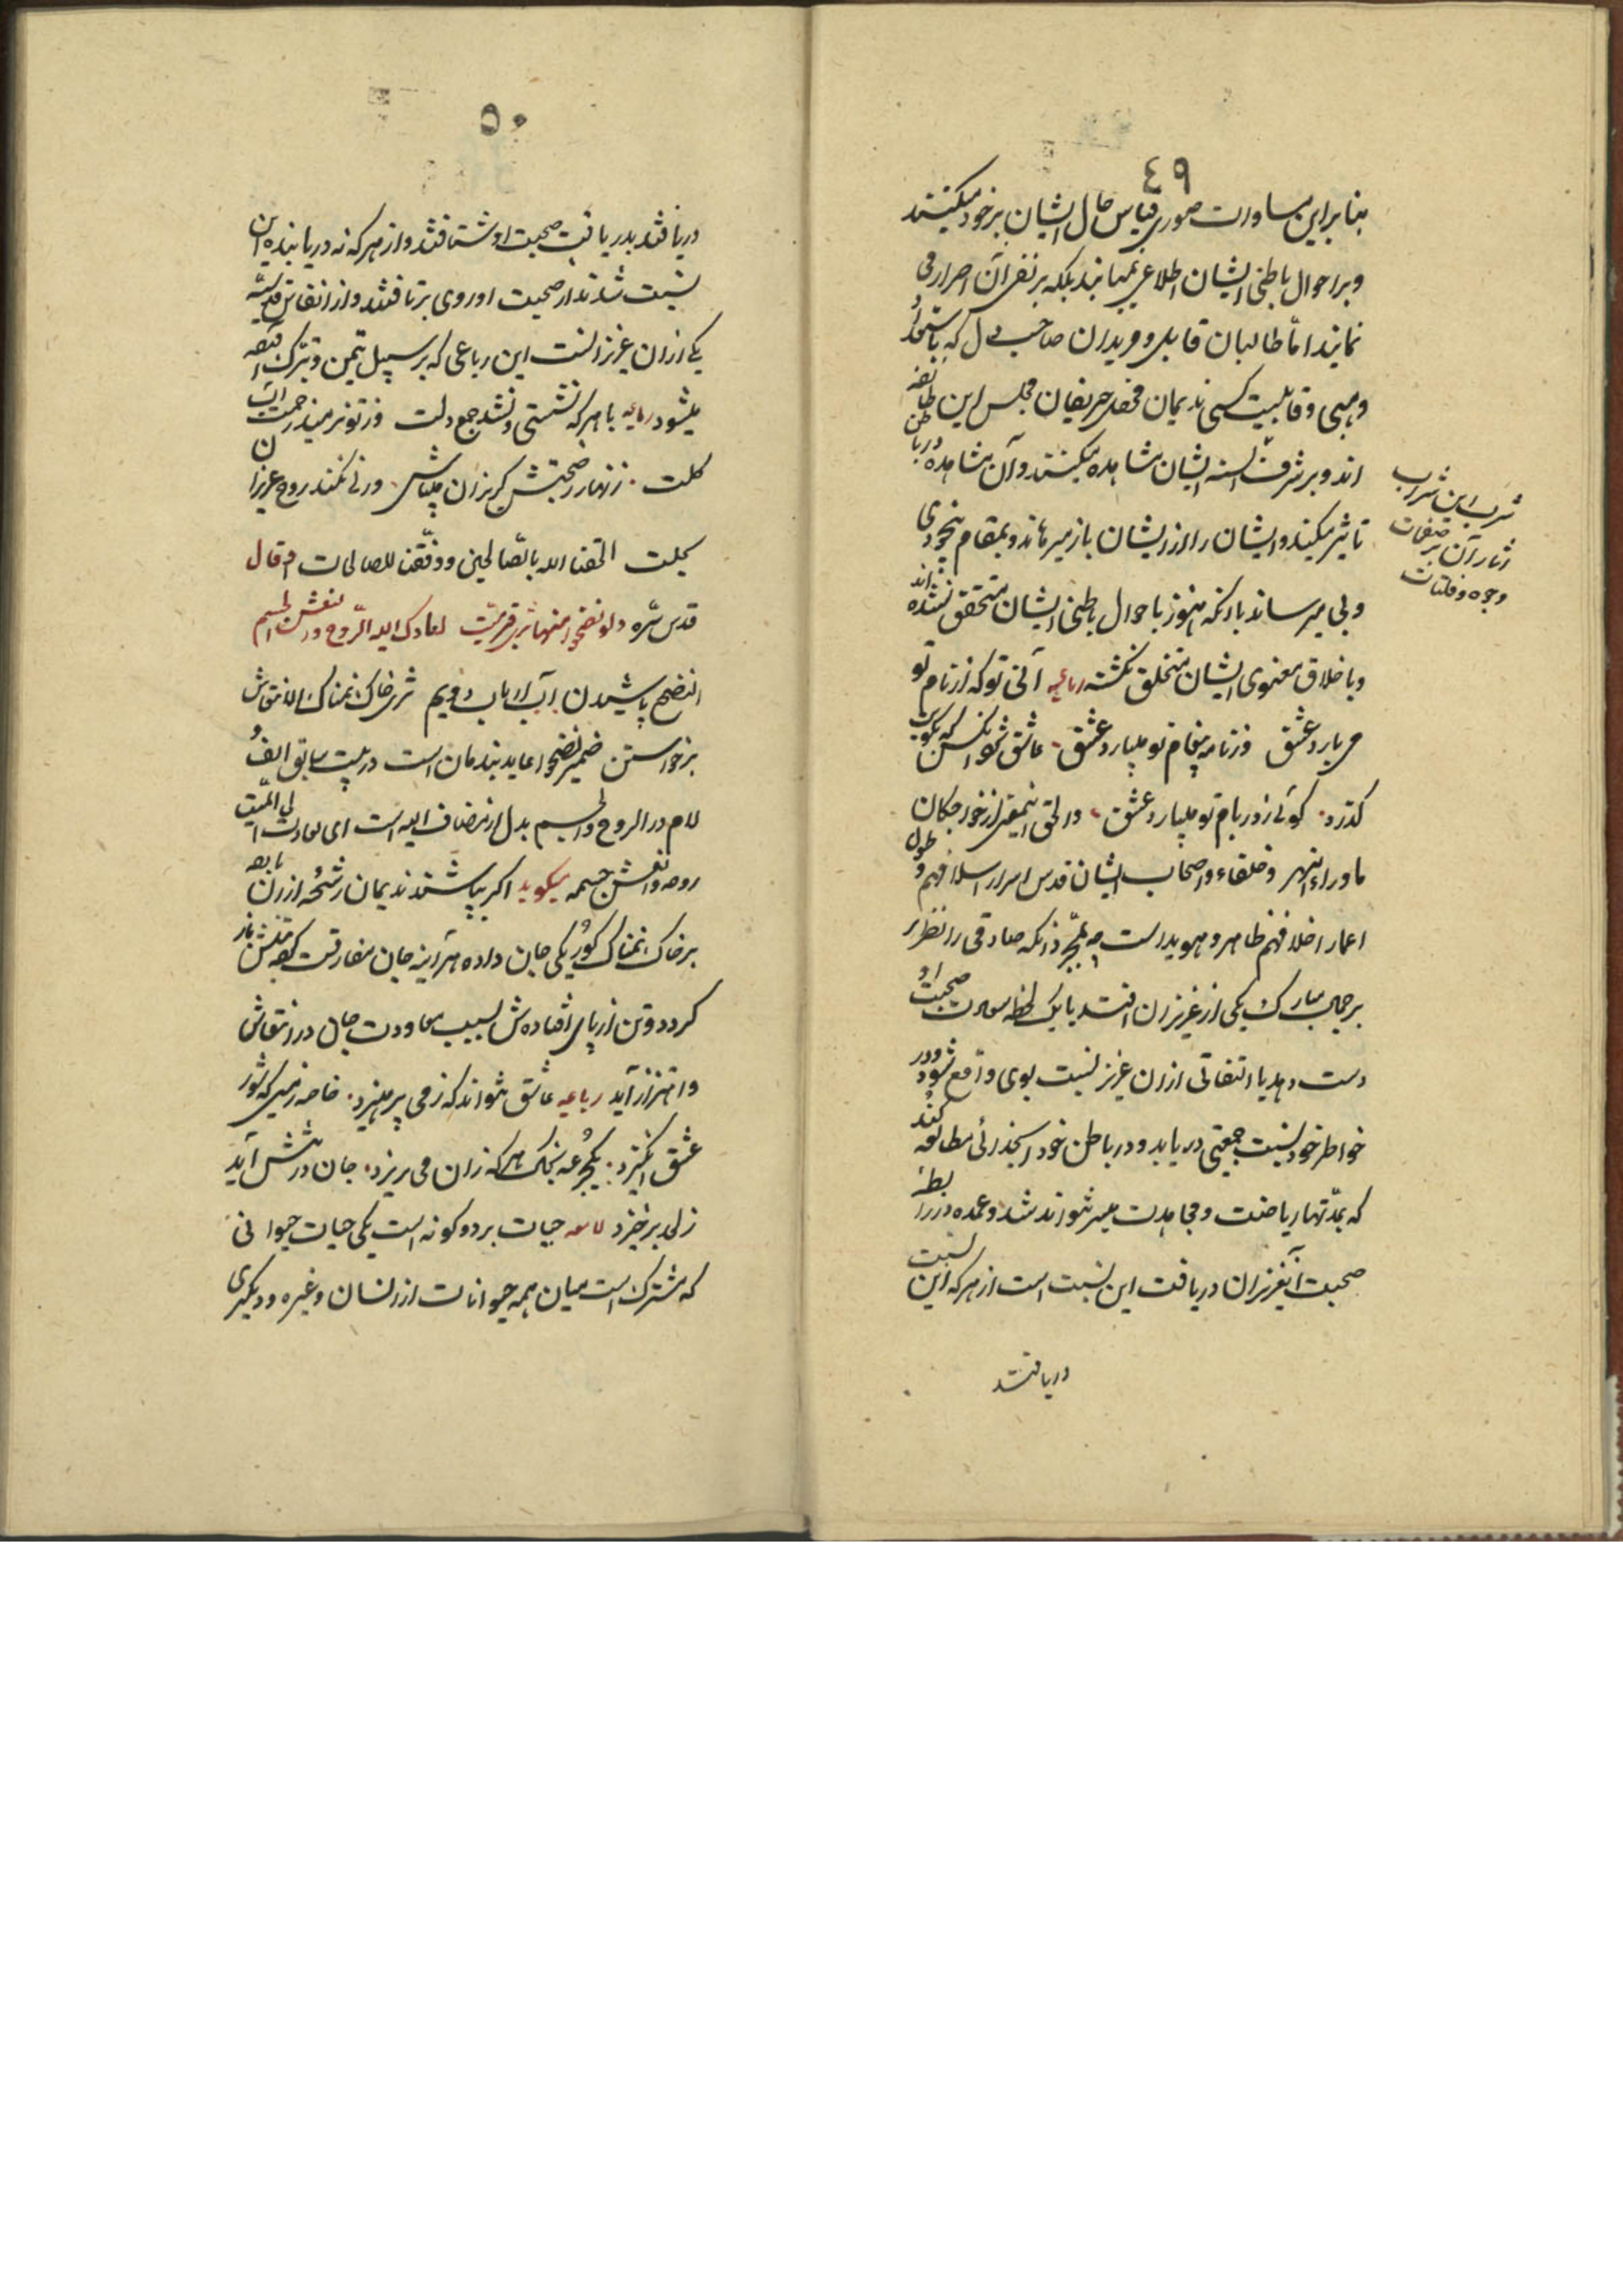 ٤٩
بنابراین مساوات صوری قیاس حال ایشان برخود میکنند
و بر احوال باطنی ایشان اطلاع نمییابند بلکه بر نفی آن اصرار می
نمایند اما طالبان قابل و مریدان صاحب دل که باستعداد
وهبی و قابلیت کسبی ندیمان محفل و حریفان مجلس این طائفه
اند و بر شرف السنه ایشان مشاهده میکنند و آن مشاهده در باطن
شرب این شراب
آثار آن بر صفحات
وجوه و فلتات
تاثیر میکند و ایشان را از ایشان باز میرهاند و بمقام بیخودی
و بی میرساند با آنکه هنوز باحوال باطنی ایشان متحقق نشده اند
و باخلاق معنوی ایشان متخلق نکشته رباعیه آنی تو که از نام تو
می بارد عشق وز نامه و پیغام تو میبارد عشق عاشق شود آنکس که بکویت
کذرد کوئی ز در و بام تو میبارد عشق و الحق اینمعنی از خواجکان
ماوراء النهر و خلفاء و اصحاب ایشان قدس اسرار اسلافهم و طول
اعمار اخلافهم ظاهر و هویداست چه بمجرد آنکه صادقی را نظر
بر جمال مبارک یکی از عزیزان افتد یا یک لحظه سعادت صحبت او
دست دهد یا التفاتی از آن عزیز نسبت بوی واقع شود در
خواطر خود نسبت جمعیتی دریابد و در باطن خود انجذابی مطالعه کند
که بمدتها ریاضت و مجاهدت میسر نتواند شد و عمده در رابطه
صحبت آن عزیزان دریافت این نسبت است از هر که این نسبت
دریافتند
٥٠
دریافتند بدریافت صحبت او شتافتند و از هر که نه دریابنده این
نسبت شدند از صحبت او روی برتافتند و از انفاس قدسیه
یکی از آن عزیزانست این رباعی که بر سبیل تیمن و تبرک آورده
میشود رباعیه با هر که نشستی و نشد جمع دلت وز تو نرمید زحمت آب
و کلت زنهار ز صحبتش کریزان میباش ورنی نکند روح عزیزان
بحلت الحقنا الله بالصالحین و وفقنا للصالحات و قال
قدس سره ولو نضحوا منها ثری قبر میت لعادت الیه الروح وانتعش الجسم
النضح پاشیدن آب از باب دویم ثری خاک نمناک الانتعاش
برخواستن ضمیر نضحوا عاید بندمان است در بیت سابق الف و
لام در الروح و الجسم بدل از مضاف الیه است ای لعادت الی المیت
روحه و انتعش جسمه میکوید اکر بپاشند ندیمان رشحه از آن باده
بر خاک نمناک کور یکی جان داده هر آینه جان مفارقت کرده بتنش باز
کردد و تن از پای افتاده ش بسبب معاودت جان در انتعاش
و اهتزاز آید رباعیه عاشق نتواند که ز می پرهیزد خاصه ز میی که شور
عشق انکیزد یکجرعه بخاک هر که زان می ریزد جان در تنش آید
ز لحد برخیزد لامعه حیات بر دو کونه است یکی حیات حیوانی
که مشترک است میان همه حیوانات از انسان و غیره و دیکری